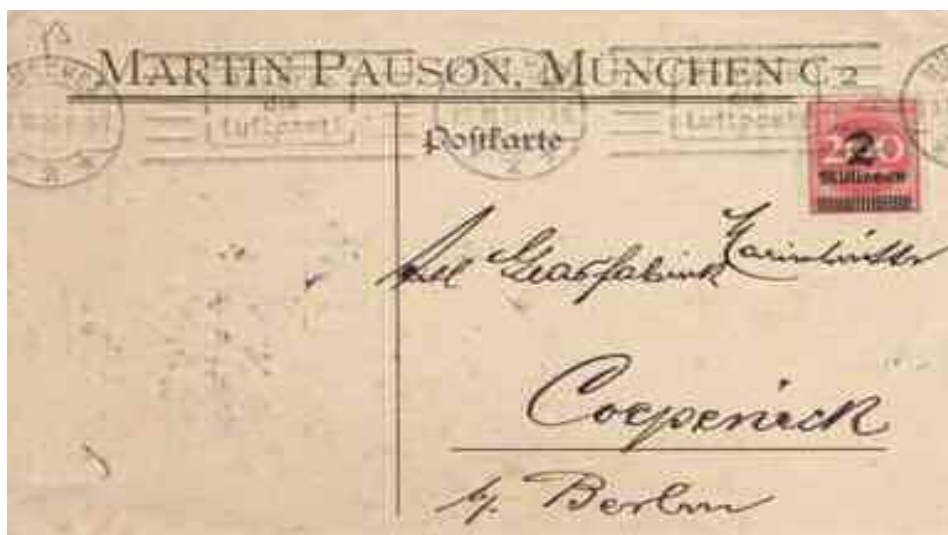 MARTIN PAUSON, MÜNCHEN C 2
die
Luftpost
Luftpost
Postkarte
200
2
Millionen
Glasfabrik
Coepenick
b/. Berlin